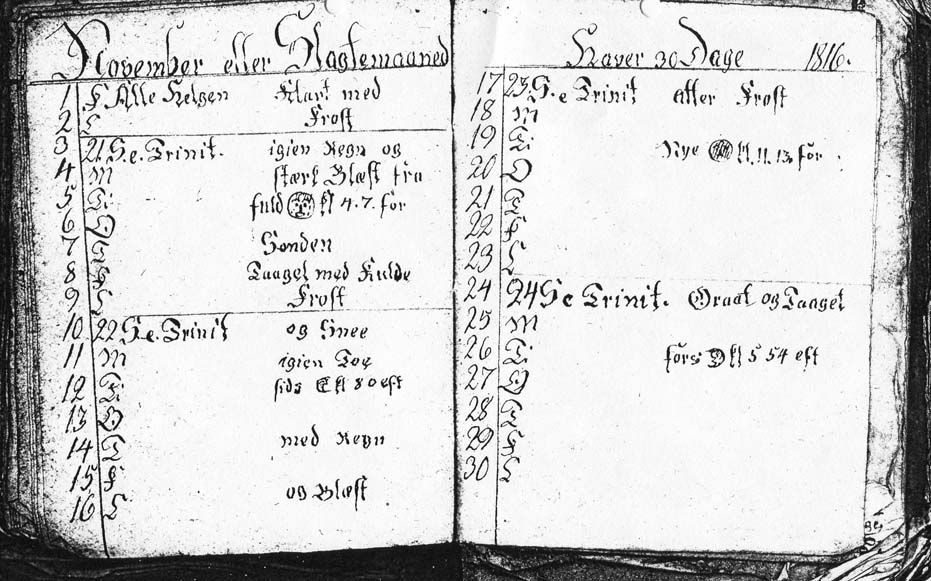 November eller Slagtemaaned
1 F Alle Helgen Klart med
2 L Frost
3 21 S. e. Trinit. igien Regn og
4 M stærk Blæst fra
5 Ti fuld kl 4. 7. for
6 O
7 T Sønden
8 F Taaget med Kulde
9 L Frost
10 22 S. e. Trinit og Snee
11 M igien Toe
12 Ti sids kl 8 0 eft
13 O
14 T med Regn
15 F
16 L og Blæst
Haver 30 Dage 1816.
17 23 S. e Trinit atter Frost
18 M
19 Ti Nye kl. 11. 13 for.
20 O
21 T
22 F
23 L
24 24 S e Trinit. Graat og Taaget
25 M
26 Ti førs kl 5 54 eft
27 O
28 T
29 F
30 L